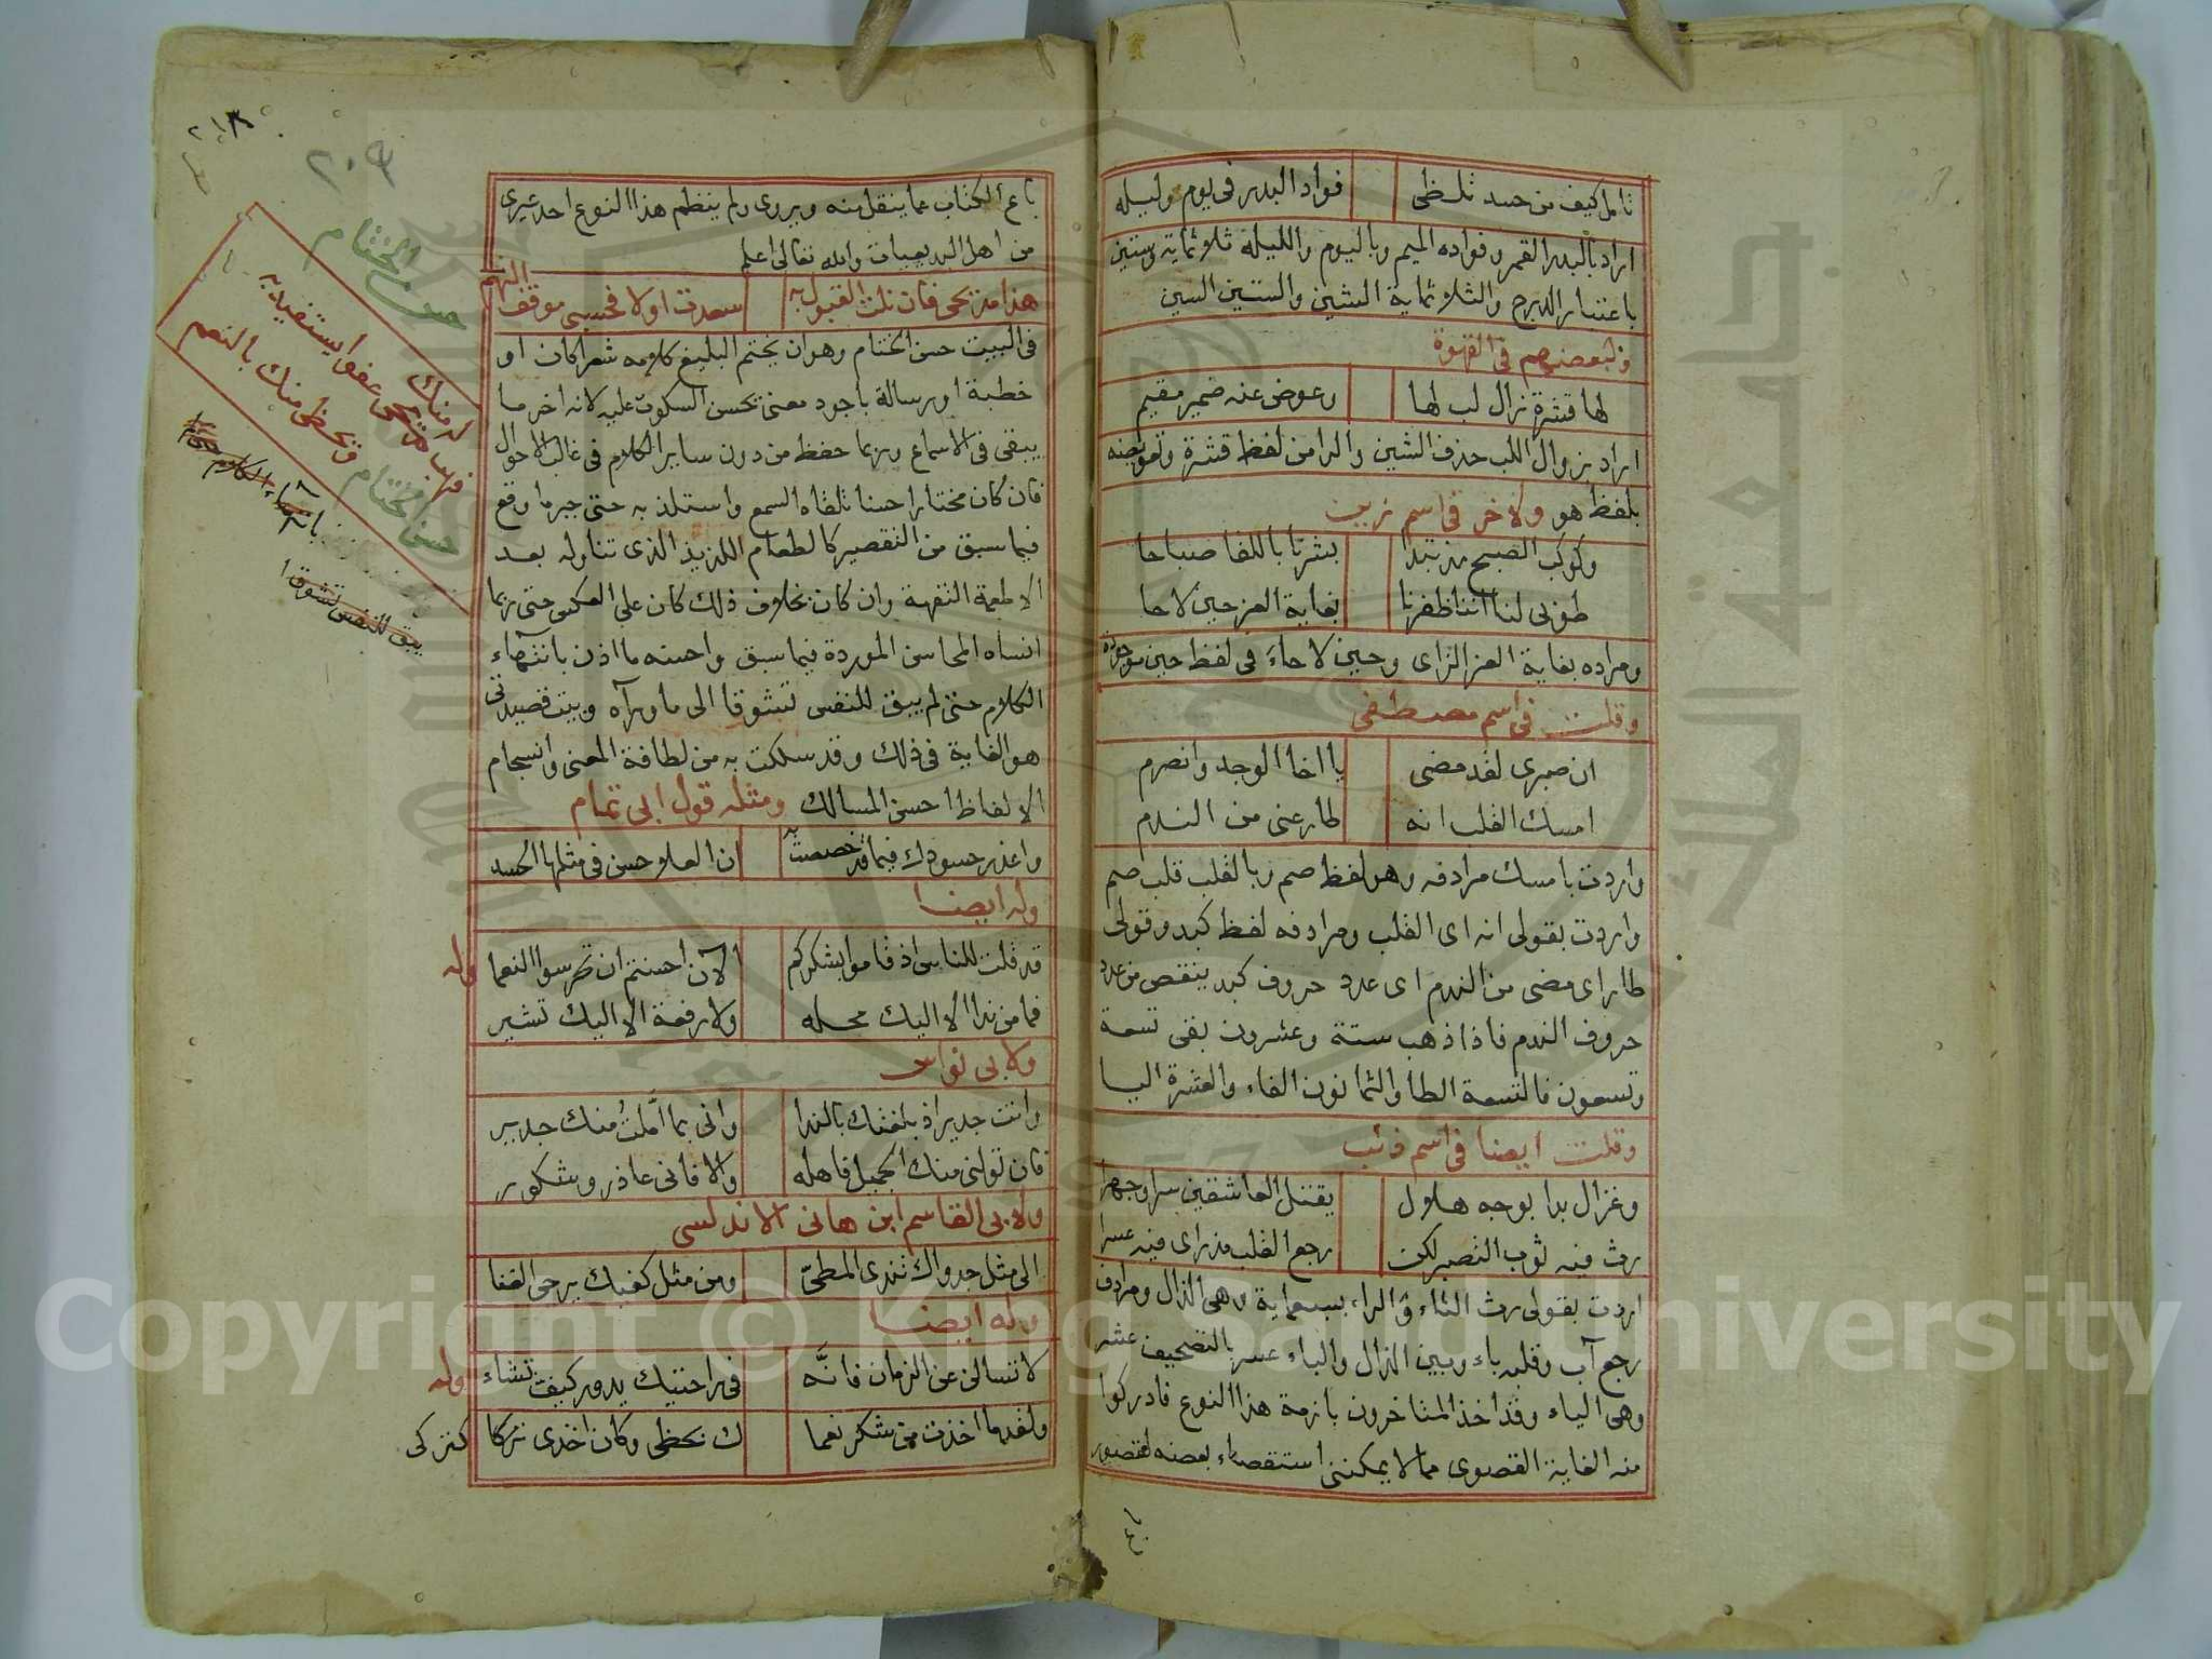 تامل كيف من حسد تلظى فواد البدر فى يوم وليله
اراد بالبدر القمر وفواده الميم وباليوم والليلة ثلاثماية وستين
باعتبار الدرج والثلاثماية الشين والستين السين
ولبعضهم فى القهوة
لها قشرة زال لب لها وعوض عنه ضمير مقيم
اراد بزوال اللب حذف الشين والرا من لفظ قشرة وتعويضه
بلفظ هو ولاخر فى اسم زبيب
وكوكب الصبح مذ تبدا بشرنا باللقا صباحا
طوبى لنا اننا ظفرنا بغاية العز حين لاحا
ومراده بغاية العز الزاى وحين لا حاء فى لفظ حين موجوده
وقلت فى اسم مصطفى
ان صبرى لقد مضى يا اخا الوجد وانصرم
امسك القلب انه طار عنى من الندم
واردت بامسك مرادفه وهو لفظ صم وبالقلب قلب صم
واردت بقولى انه اى القلب ومرادفه لفظ كبد وقولى
طار اى مضى من الندم اى عدد حروف كبد ينقص من عدد
حروف الندم فاذا ذهب ستة وعشرون بقى تسعة
وتسعون فالتسعة الطا والثمانون الفاء والعشرة اليا
وقلت ايضا فى اسم
وغزال بدا بوجه هلال يقتل العاشقين سرا وجهرا
رث فيه ثوب التصبر لكن رجع القلب مذ راى فيه عسرا
اردت بقولى رث الثاء والراء بسبعماية وهى الذال ومرادف
رجع آب وقلبه باء وبين الذال والباء عسر بالتصحيف عشر
وهى الياء وقد اخذ المتاخرون بازمة هذا النوع فادركوا
منه الغاية القصوى مما لا يمكننى استقصاء بعضه لقصور
باع الكتاب عما ينقل منه ويروى ولم ينظم هذا النوع احد غيرى
من اهل البديعيات والله تعالى اعلم
هذا مديحى فان نلت القبول به سعدت اولا فحسبى موقف التهم
فى البيت حسن الختام وهو ان يختم البليغ كلامه شعرا كان او
خطبة او رسالة باجود معنى يحسن السكوت عليه لانه اخر ما
يبقى فى الاسماع وربما حفظ من دون ساير الكلام فى غالب الاحوال
فان كان مختارا حسنا تلقاه السمع واستلذ به حتى جبر ما وقع
فيما سبق من التقصير كالطعام اللذيذ الذى تناوله بعد
الاطعمة التفهة وان كان بخلاف ذلك كان على العكس حتى ربما
انساه المحاسن الموردة فيما سبق واحسنه ما اذن بانتهاء
الكلام حتى لم يبق للنفس تشوقا الى ما وراه وبيت قصيدتى
هو الغاية فى ذلك وقد سلكت به من لطافة المعنى وانسجام
الالفاظ احسن المسالك ومثله قول ابى تمام
واعذر حسودك فيما قد خصصت به ان العلا حسن فى مثلها الحسد
وله ايضا
قد قلت للناس اذ قاموا بشكركم الآن احسنتم ان تحرسوا النعما وله
فما من ندا الا اليك محله ولا رفعة الا اليك تشير
ولابى نواس
وانت جدير اذ بلغتك بالندا وانى بما املت منك جدير
فان تولنى منك الجميل فاهله والا فانى عاذر وشكور
ولابى القاسم ابن هانى الاندلسى
الى مثل جدواك تندى المطى ومن مثل كفيك يرجى الغنا
وله ايضا
لا تسالن عن الزمان فانه فى راحتيك يدور كيف تشاء وله
ولقد ما اخذت من شكر نعما ك بحظى وكان اخذى تركا
كتركى
٢١٨
٢٠٩
حسن الختام
منك عفوا يستفيد به
وتحظى منك بالنعم
حسن الختام
الكلام حتى
يبق للنفس تشوقا